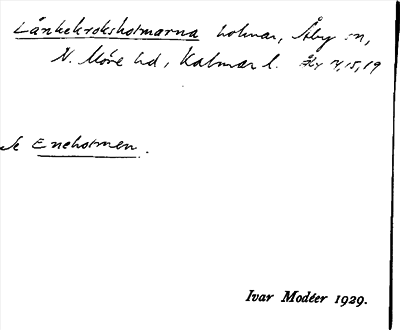 Länkekroksholmarna holmar, Åby sn,
N. Möre hd, Kalmar l. Äk 4,15,19
Se Eneholmen.
Ivar Modéer 1929.